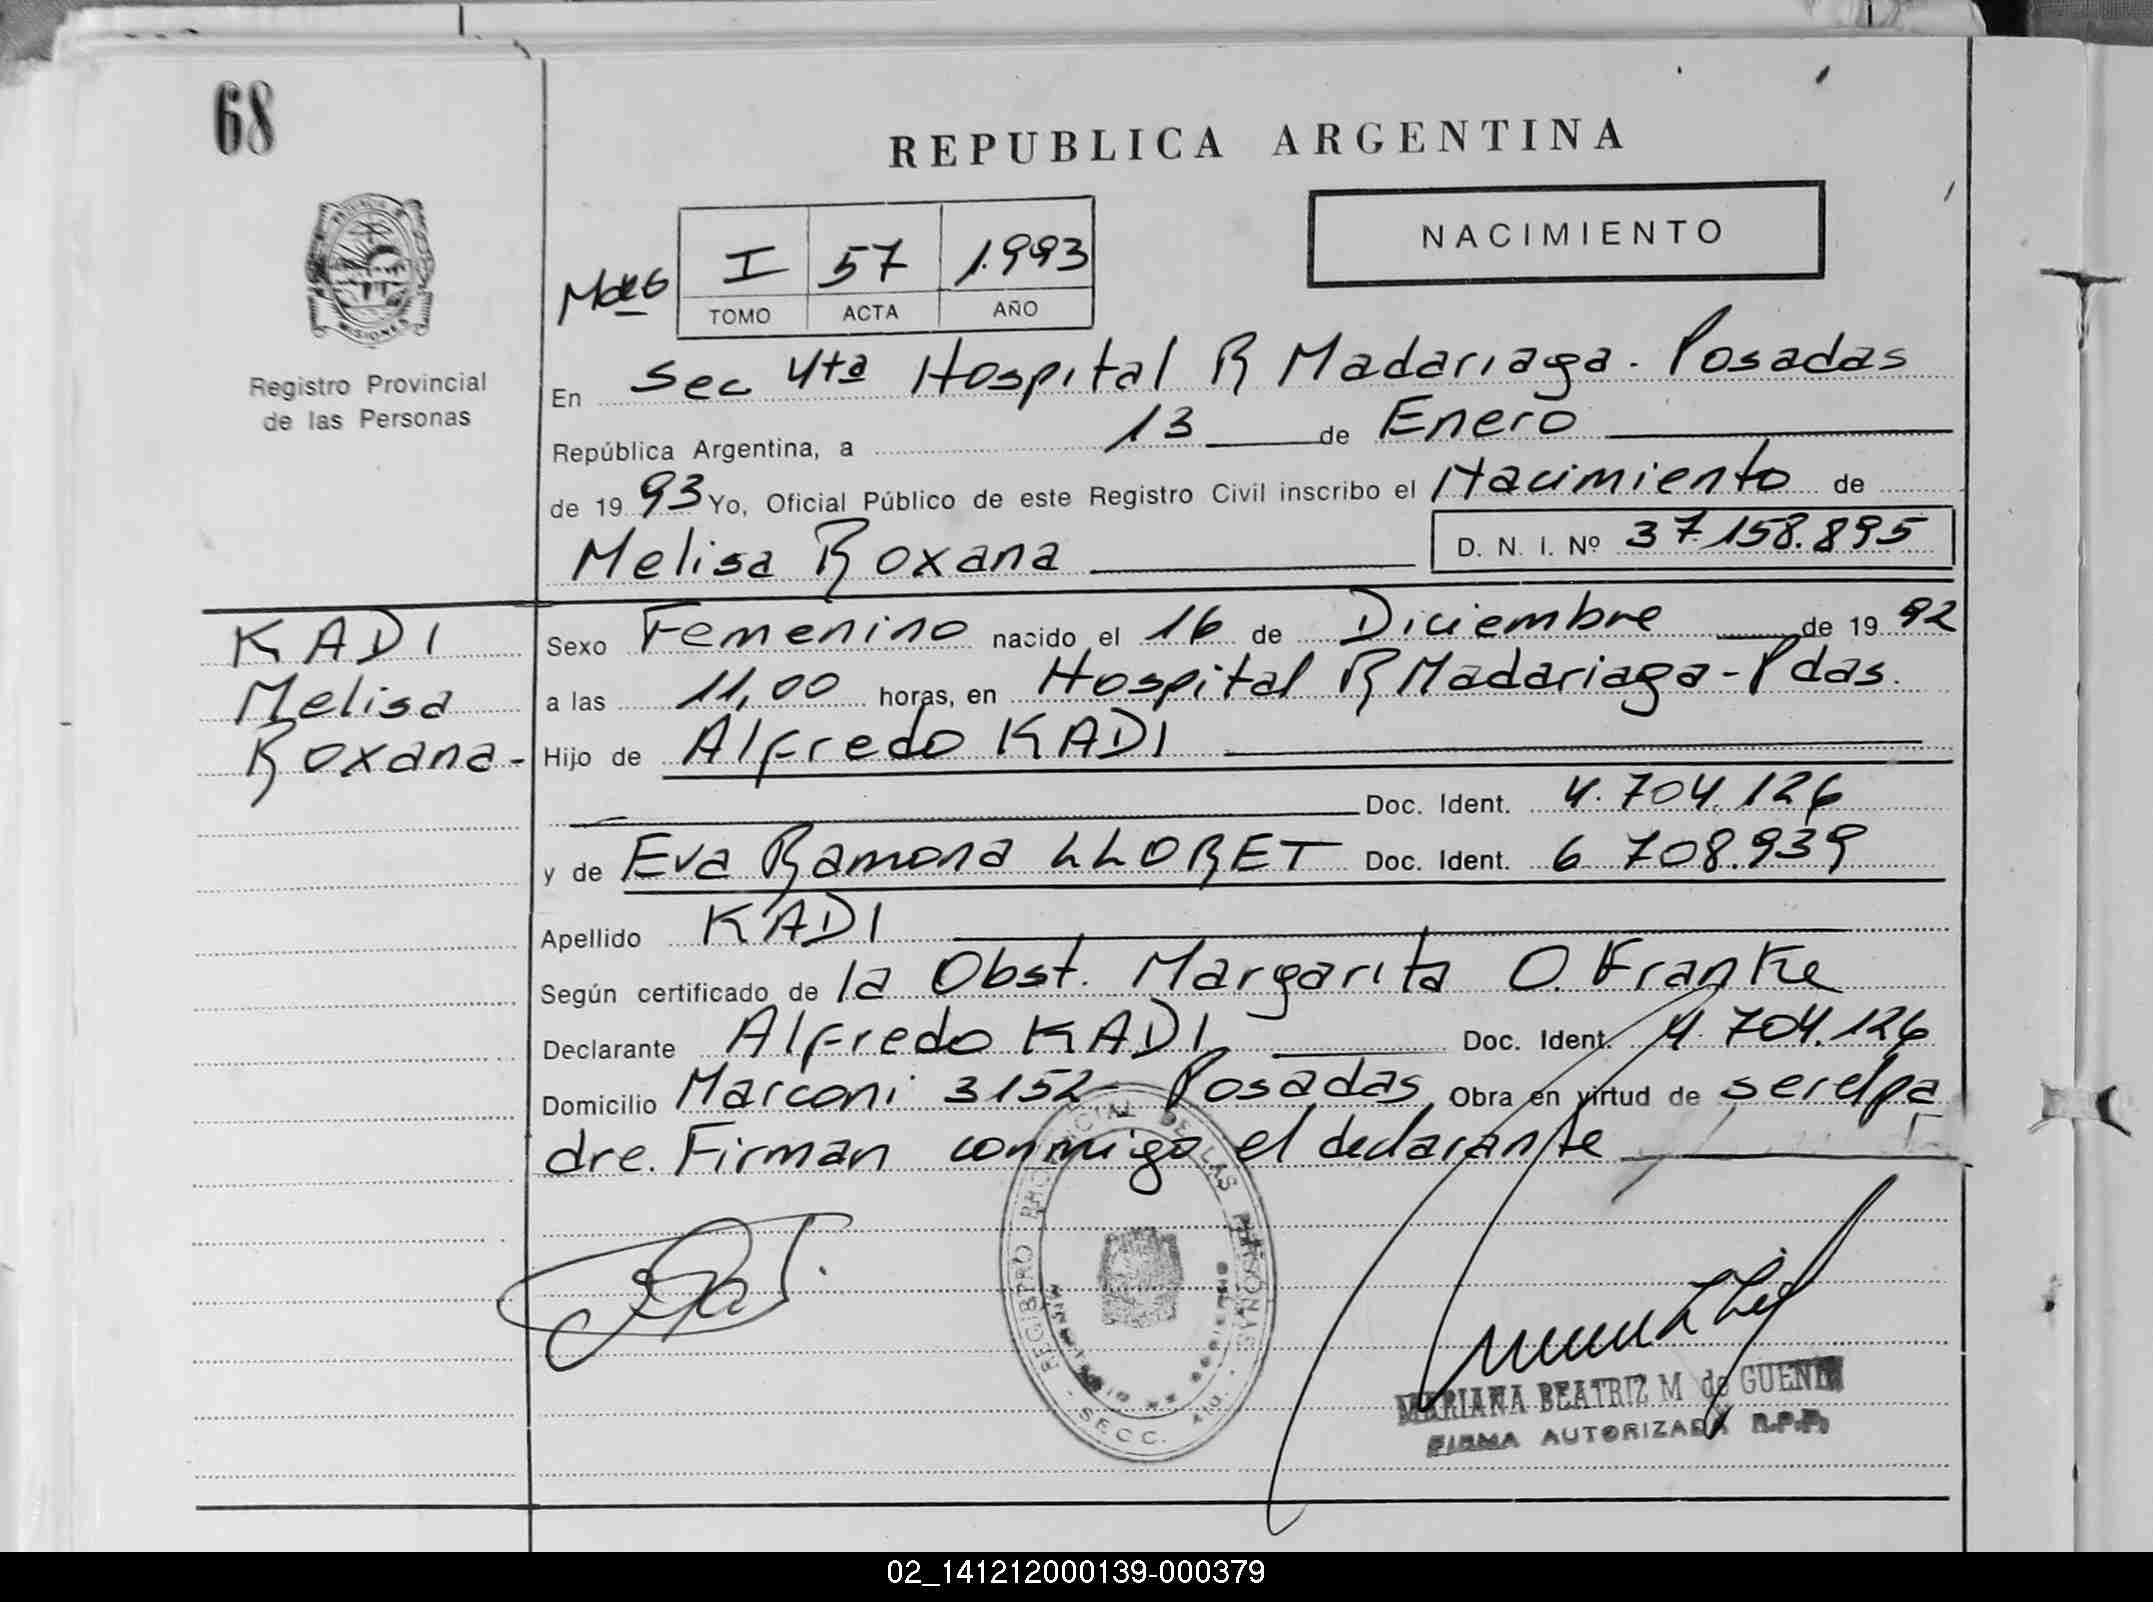 68
REPUBLICA ARGENTINA
NACIMIENTO
I 57 1.993
TOMO ACTA AÑO
PROVINCIA DE MISIONES
Registro Provincial
de las Personas
En Sec 4ta Hospital R Madariaga. Posadas
República Argentina, a 13 de Enero
de 1993 Yo, Oficial Público de este Registro Civil inscribo el Nacimiento de
Melisa Roxana D. N. I. Nº 37.158.895
KADI
Melisa
Roxana-
Sexo Femenino nacido el 16 de Diciembre de 1992
a las 11,00 horas, en Hospital R Madariaga-Pdas.
Hijo de Alfredo KADI
Doc. Ident. 4.704.126
y de Eva Ramona LLORET Doc. Ident. 6 708.939
Apellido KADI
Según certificado de la Obst. Margarita O. Franke
Declarante Alfredo KADI Doc. Ident. 4.704.126
Domicilio Marconi 3152- Posadas Obra en virtud de ser el pa
dre. Firman conmigo el declarante
REGISTRO PROVINCIAL DE LAS PERSONAS
SECC. 4ta.
MARIANA BEATRIZ M de
FIRMA AUTORIZADA R.P.P.
02_141212000139-000379